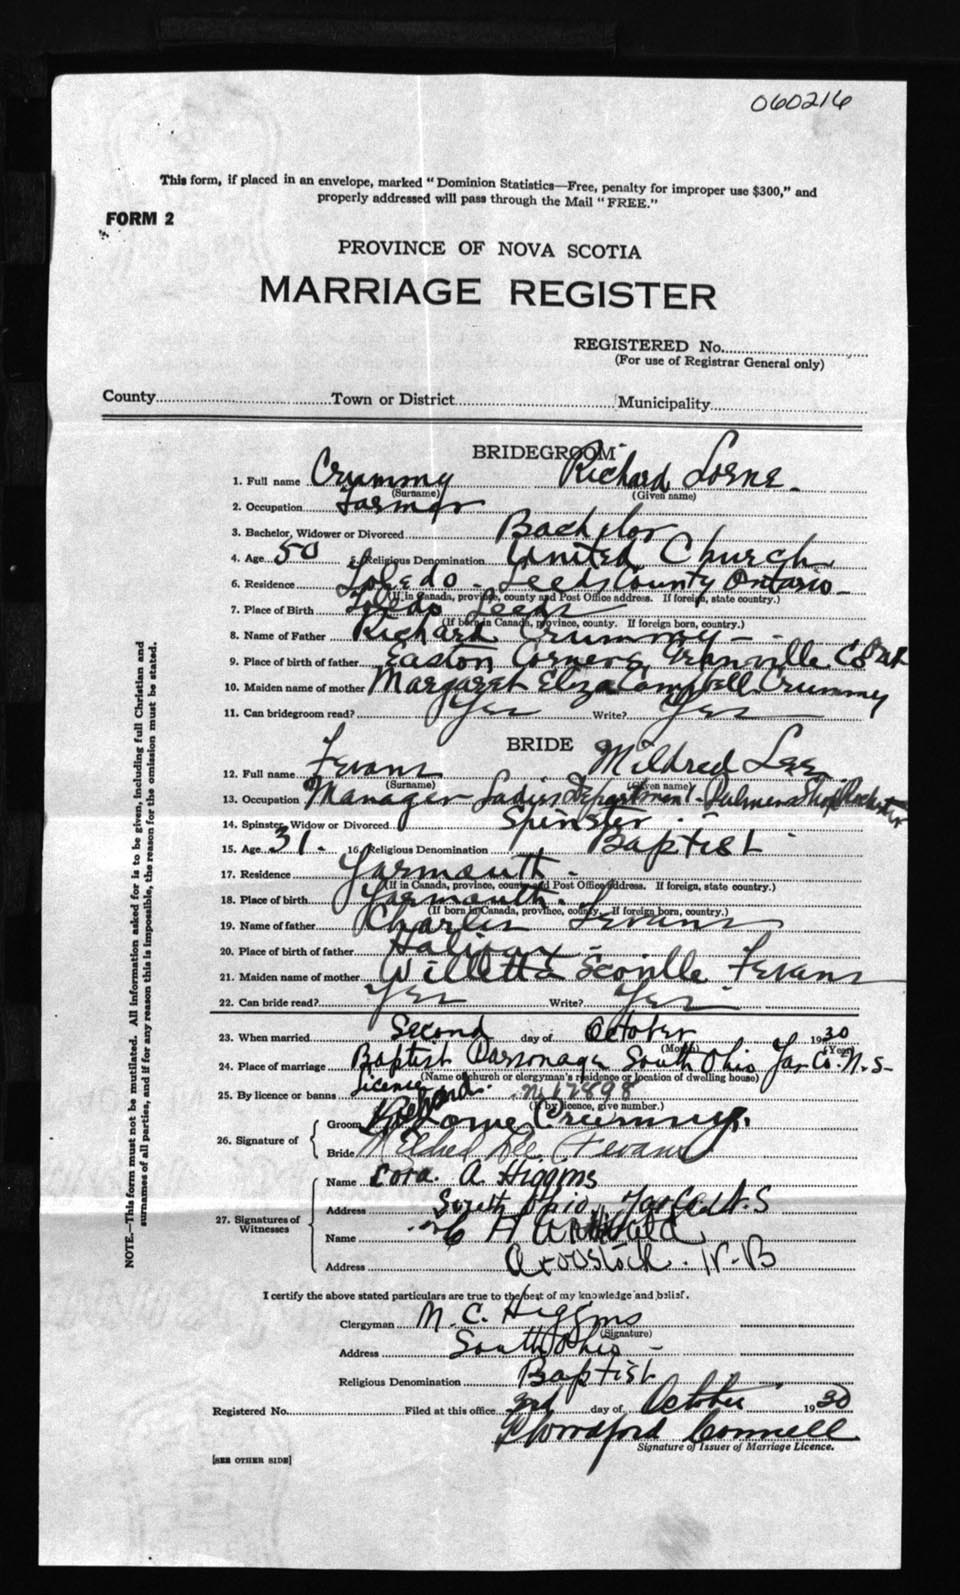 060216
This form, if placed in an envelope, marked "Dominion Statistics—Free, penalty for improper use $300," and
properly addressed will pass through the Mail "FREE."
FORM 2
PROVINCE OF NOVA SCOTIA
MARRIAGE REGISTER
REGISTERED No.
(For use of Registrar General only)
County Town or District Municipality
BRIDEGROOM
1. Full name Crummy Richard Lorne
(Surname) (Given name)
2. Occupation Farmer
3. Bachelor, Widower or Divorced Bachelor
4. Age 50 5. Religious Denomination United Church
6. Residence Toledo - Leeds County Ontario
(If in Canada, province, county and Post Office address. If foreign, state country.)
7. Place of Birth Toledo Leeds
(If born in Canada, province, county. If foreign born, country.)
8. Name of Father Richard Crummy
9. Place of birth of father Easton Corners Granville Co
10. Maiden name of mother Margaret Eliza Campbell Crummy
11. Can bridegroom read? Yes Write? Yes
BRIDE
12. Full name Fevans Mildred Lee
(Surname) (Given name)
13. Occupation Manager Ladies Department - Palmers Shop Rochester
14. Spinster, Widow or Divorced Spinster
15. Age 31. 16. Religious Denomination Baptist
17. Residence Yarmouth -
(If in Canada, province, county and Post Office address. If foreign, state country.)
18. Place of birth Yarmouth.
(If born in Canada, province, county. If foreign born, country.)
19. Name of father Charles Fevans
20. Place of birth of father Halifax -
21. Maiden name of mother Willetta Scoville Fevans
22. Can bride read? Yes Write? Yes
23. When married Second day of October 1930
(Month) (Year)
24. Place of marriage Baptist Parsonage South Ohio Yar Co. N.S-
(Name of church or clergyman's residence or location of dwelling house)
25. By licence or banns License. No 17898
(If by licence, give number.)
26. Signature of Groom Richard Lorne Crummy.
Bride Mildred Lee Fevans
27. Signatures of Witnesses
Name Cora. A Higgins
Address South Ohio, Yar Co. N.S
Name C H
Address N-B
I certify the above stated particulars are true to the best of my knowledge and belief.
Clergyman M. C. Higgins
(Signature)
Address South Ohio -
Religious Denomination Baptist
Registered No. Filed at this office 3rd day of October 1930
Connell
Signature of Issuer of Marriage Licence.
[SEE OTHER SIDE]
NOTE.—This form must not be mutilated. All information asked for is to be given, including full Christian and
surnames of all parties, and if for any reason this is impossible, the reason for the omission must be stated.